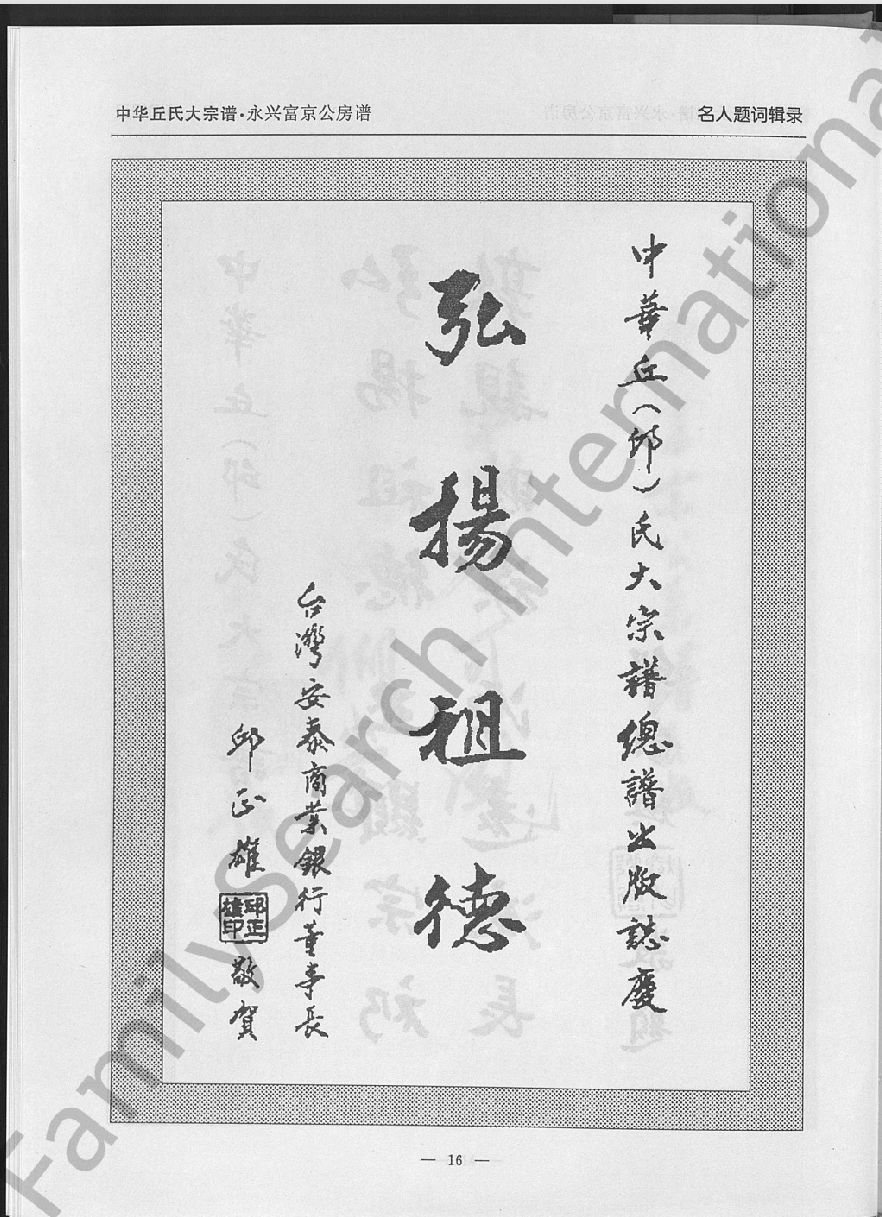 中华丘氏大宗谱·永兴富京公房谱
名人题词辑录
中華丘（邱）氏大宗譜總譜出版誌慶
弘揚祖德
台灣安泰商業銀行董事長
邱正雄
邱正雄印
敬賀
— 16 —
FamilySearch International